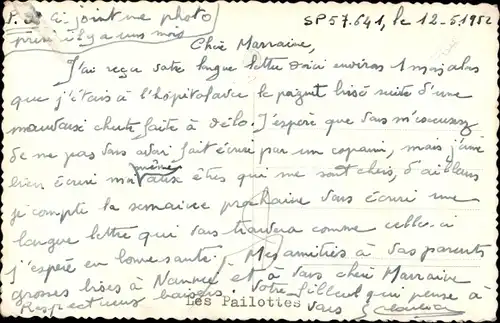 P.S. Ci joint une photo
prise il y a un mois
SP 57.641, le 12-5-1952
Chère Marraine,
J'ai reçu votre longue lettre voici environ 1 mois alors
que j'étais à l'hôpital avec le poignet brisé suite d'une
mauvaise chute faite à vélo. J'espère que vous m'excuserez
de ne pas vous avoir fait écrire par un copain, mais j'aime
bien écrire moi même aux êtres qui me sont chers, d'ailleurs
je compte la semaine prochaine vous écrire une
longue lettre qui vous trouvera comme celle-ci
j'espère en bonne santé. Mes amitiés à vos parents
grosses bises à et à vous chère Marraine
Respectueux baisers. Votre filleul qui pense à
vous
Les Paillottes